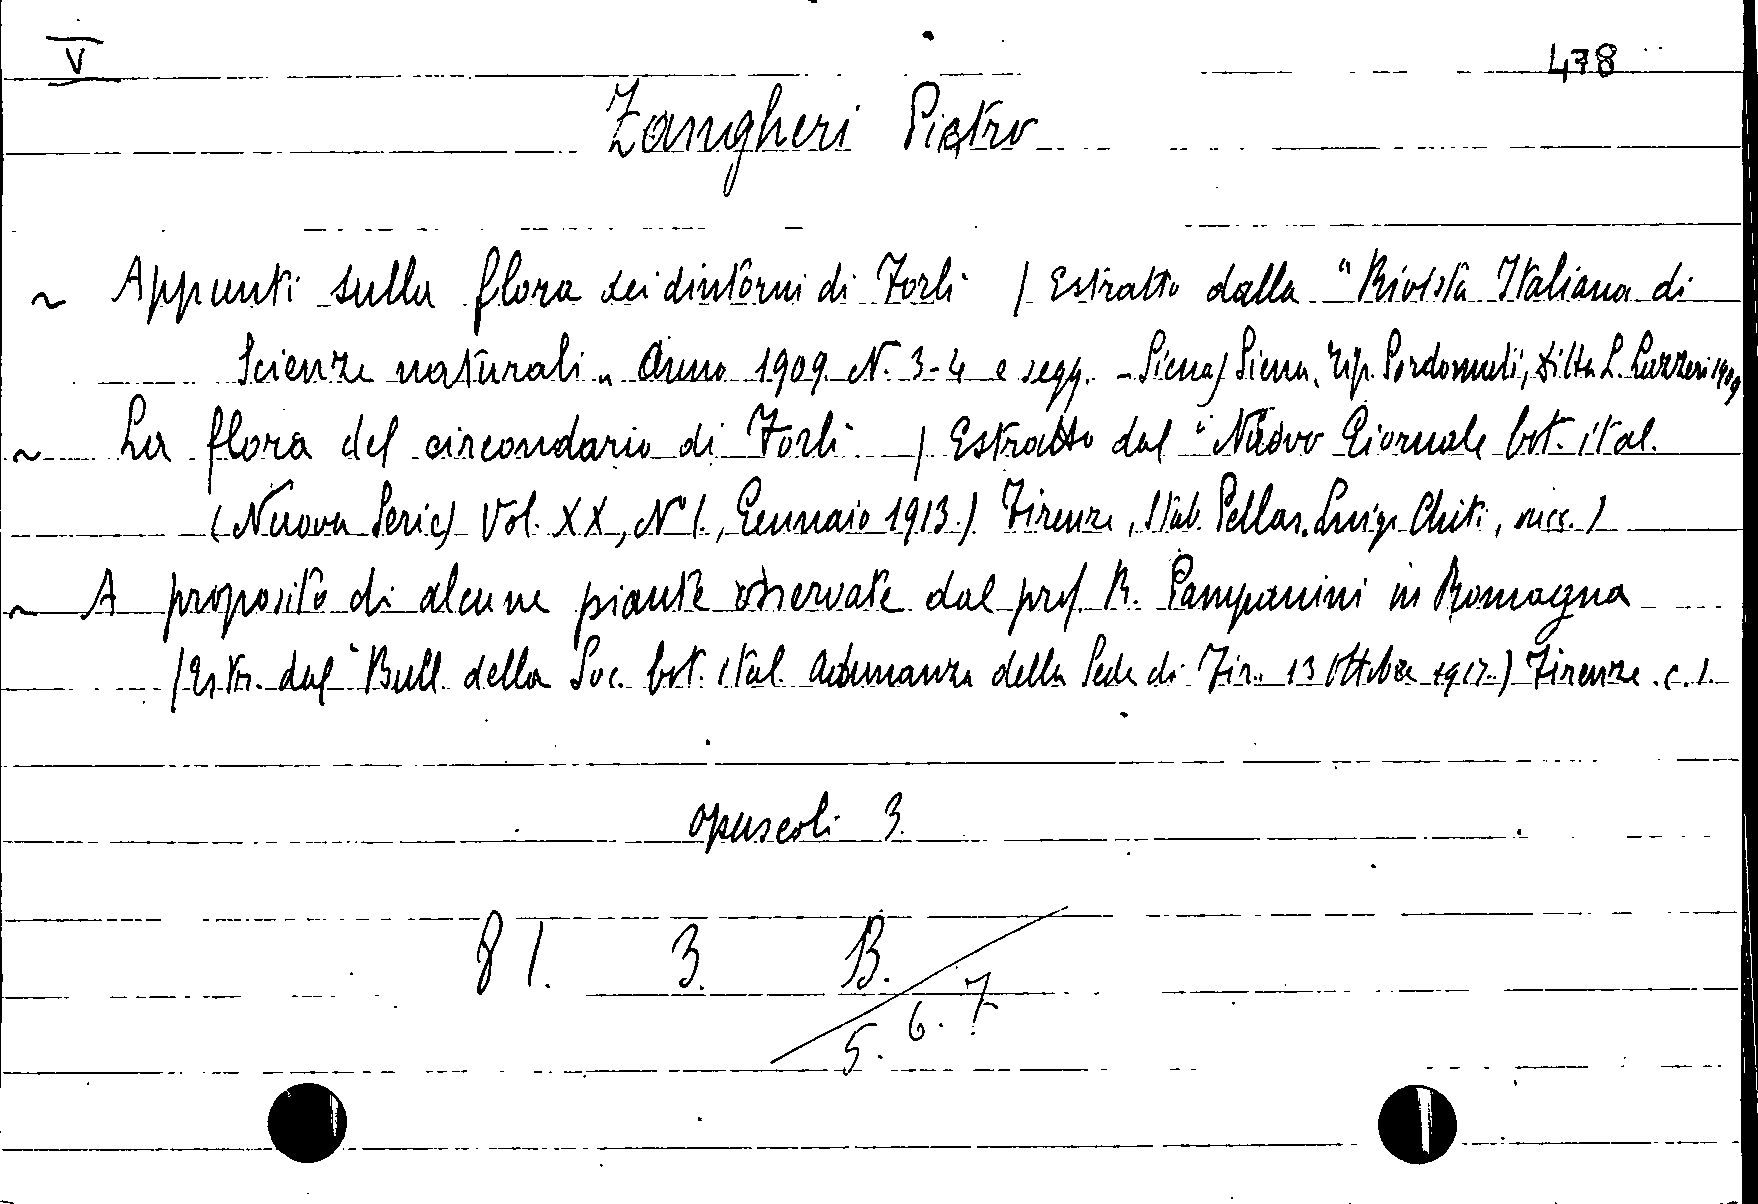 V
478
Zangheri Pietro
~ Appunti sulla flora dei dintorni di Forlì (Estratto dalla "Rivista Italiana di
Scienze naturali" Anno 1909 N. 3-4 e segg. - Siena) Siena, Tip. Sordomuti, ditta L. Lazzeri 1909
~ La flora del circondario di Forlì (Estratto dal "Nuovo Giornale bot. ital.
(Nuova Serie) Vol. XX, N° 1., Gennaio 1913.) Firenze, Stab. Pellas. Luigi Chiti, succ. )
~ A proposito di alcune piante osservate dal prof. R. Pampanini in Romagna
(Estr. dal "Bull. della Soc. bot. ital. Adunanza della Sede di Fir." 13 Ottobre 1917.) Firenze. c. s.
opuscoli 3.
81. 3. B.
5. 6. 7